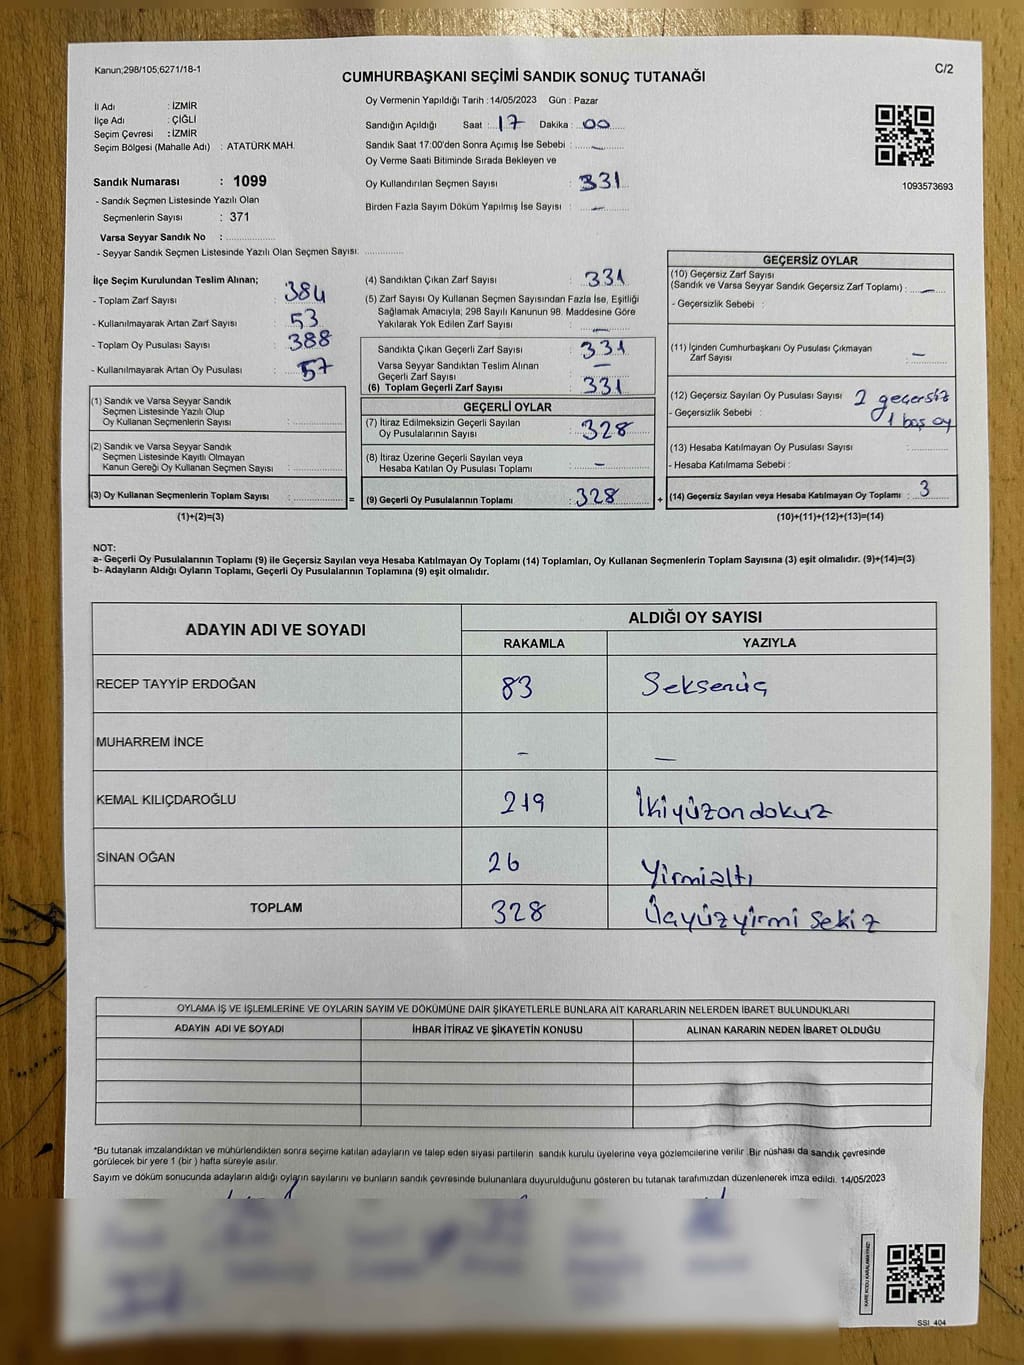 Kanun;298/105;6271/18-1
C/2
CUMHURBAŞKANI SEÇİMİ SANDIK SONUÇ TUTANAĞI
İl Adı : İZMİR
İlçe Adı : ÇİĞLİ
Seçim Çevresi : İZMİR
Seçim Bölgesi (Mahalle Adı) : ATATÜRK MAH.
Sandık Numarası : 1099
- Sandık Seçmen Listesinde Yazılı Olan
Seçmenlerin Sayısı : 371
Varsa Seyyar Sandık No :
- Seyyar Sandık Seçmen Listesinde Yazılı Olan Seçmen Sayısı:
Oy Vermenin Yapıldığı Tarih : 14/05/2023 Gün : Pazar
Sandığın Açıldığı Saat : 17 Dakika : 00
Sandık Saat 17:00'den Sonra Açımış İse Sebebi : -
Oy Verme Saati Bitiminde Sırada Bekleyen ve
Oy Kullandırılan Seçmen Sayısı : 331
Birden Fazla Sayım Döküm Yapılmış İse Sayısı : -
1093573693
İlçe Seçim Kurulundan Teslim Alınan;
- Toplam Zarf Sayısı : 384
- Kullanılmayarak Artan Zarf Sayısı : 53
- Toplam Oy Pusulası Sayısı : 388
- Kullanılmayarak Artan Oy Pusulası : 57
(1) Sandık ve Varsa Seyyar Sandık
Seçmen Listesinde Yazılı Olup
Oy Kullanan Seçmenlerin Sayısı :
(2) Sandık ve Varsa Seyyar Sandık
Seçmen Listesinde Kayıtlı Olmayan
Kanun Gereği Oy Kullanan Seçmen Sayısı :
(3) Oy Kullanan Seçmenlerin Toplam Sayısı : =
(1)+(2)=(3)
(4) Sandıktan Çıkan Zarf Sayısı : 331
(5) Zarf Sayısı Oy Kullanan Seçmen Sayısından Fazla İse, Eşitliği
Sağlamak Amacıyla; 298 Sayılı Kanunun 98. Maddesine Göre
Yakılarak Yok Edilen Zarf Sayısı : -
Sandıkta Çıkan Geçerli Zarf Sayısı : 331
Varsa Seyyar Sandıktan Teslim Alınan
Geçerli Zarf Sayısı : -
(6) Toplam Geçerli Zarf Sayısı : 331
GEÇERLİ OYLAR
(7) İtiraz Edilmeksizin Geçerli Sayılan
Oy Pusulasının Sayısı : 328
(8) İtiraz Üzerine Geçerli Sayılan veya
Hesaba Katılan Oy Pusulası Toplamı : -
(9) Geçerli Oy Pusulalarının Toplamı : 328 +
GEÇERSİZ OYLAR
(10) Geçersiz Zarf Sayısı
(Sandık ve Varsa Seyyar Sandık Geçersiz Zarf Toplamı) : -
- Geçersizlik Sebebi :
(11) İçinden Cumhurbaşkanı Oy Pusulası Çıkmayan
Zarf Sayısı : -
(12) Geçersiz Sayılan Oy Pusulası Sayısı : 2 geçersiz
- Geçersizlik Sebebi : 1 boş oy
(13) Hesaba Katılmayan Oy Pusulası Sayısı :
- Hesaba Katılmama Sebebi :
(14) Geçersiz Sayılan veya Hesaba Katılmayan Oy Toplamı : 3
(10)+(11)+(12)+(13)=(14)
NOT:
a- Geçerli Oy Pusulalarının Toplamı (9) ile Geçersiz Sayılan veya Hesaba Katılmayan Oy Toplamı (14) Toplamları, Oy Kullanan Seçmenlerin Toplam Sayısına (3) eşit olmalıdır. (9)+(14)=(3)
b- Adayların Aldığı Oyların Toplamı, Geçerli Oy Pusulalarının Toplamına (9) eşit olmalıdır.
ADAYIN ADI VE SOYADI
ALDIĞI OY SAYISI
RAKAMLA YAZIYLA
RECEP TAYYİP ERDOĞAN 83 Seksenüç
MUHARREM İNCE - -
KEMAL KILIÇDAROĞLU 219 İkiyüzondokuz
SİNAN OĞAN 26 Yirmialtı
TOPLAM 328 Üçyüzyirmi sekiz
OYLAMA İŞ VE İŞLEMLERİNE VE OYLARIN SAYIM VE DÖKÜMÜNE DAİR ŞİKAYETLERLE BUNLARA AİT KARARLARIN NELERDEN İBARET BULUNDUKLARI
ADAYIN ADI VE SOYADI İHBAR İTİRAZ VE ŞİKAYETİN KONUSU ALINAN KARARIN NEDEN İBARET OLDUĞU
*Bu tutanak imzalandıktan ve mühürlendikten sonra seçime katılan adayların ve talep eden siyasi partilerin sandık kurulu üyelerine veya gözlemcilerine verilir .Bir nüshası da sandık çevresinde
görülecek bir yere 1 (bir ) hafta süreyle asılır.
Sayım ve döküm sonucunda adayların aldığı oyların sayılarını ve bunların sandık çevresinde bulunanlara duyurulduğunu gösteren bu tutanak tarafımızdan düzenlenerek imza edildi. 14/05/2023
KARE KODU KARALAMAYINIZ!
SSI_404